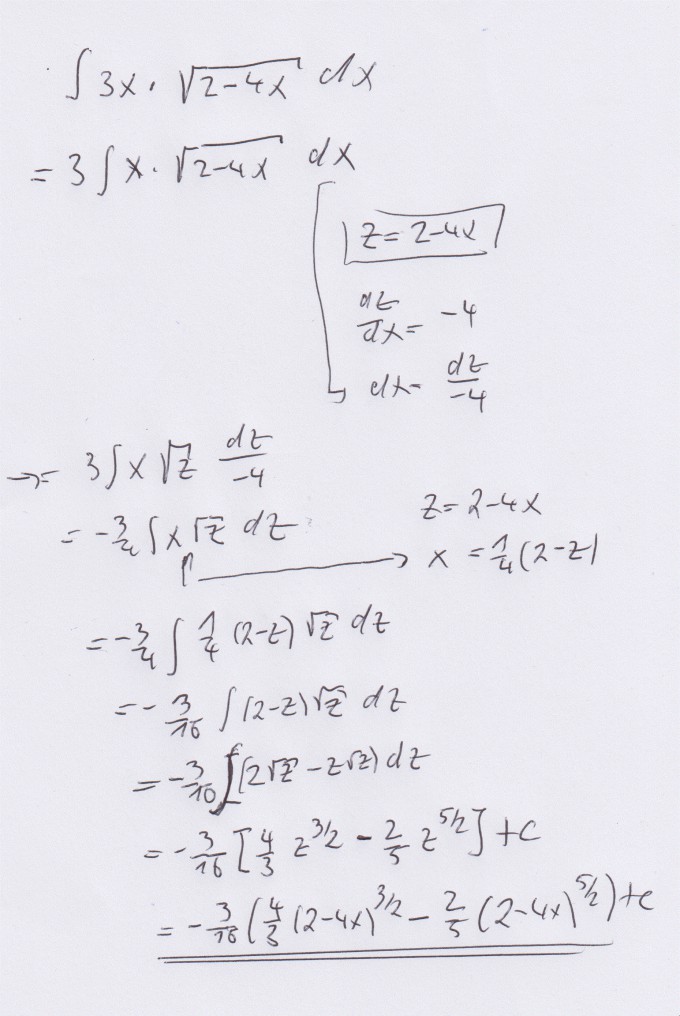 ∫ 3x · √(2-4x) dx
= 3 ∫ x · √(2-4x) dx
z = 2-4x
dz/dx = -4
dx = dz/-4
→ = 3 ∫ x √z dz/-4
= -3/4 ∫ x √z dz
z = 2-4x
x = 1/4 (2-z)
= -3/4 ∫ 1/4 (2-z) √z dz
= - 3/16 ∫ (2-z) √z dz
= -3/16 ∫ (2√z - z√z) dz
= - 3/16 [4/3 z^3/2 - 2/5 z^5/2] + c
= - 3/16 (4/3 (2-4x)^3/2 - 2/5 (2-4x)^5/2) + c